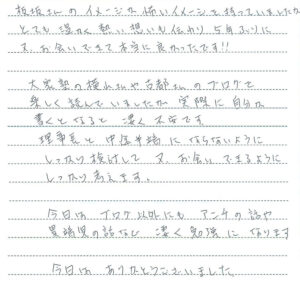 板坂さんのイメージは怖いイメージを持っていましたが
とても温かく熱い想いも伝わり5年ぶりに
又、お会いできて本当に良かったです!!
大家塾の横山さんや古都さんのブログで
楽しく読んでいましたが実際に自分が
書くとなると凄く不安です
理事長と中途半端にならないように
しっかり検討して又、お会いできるように
しっかり考えます。
今日はブログ以外にもアンチの話や
農場県の話など凄く勉強になります
今日はありがとうございました。